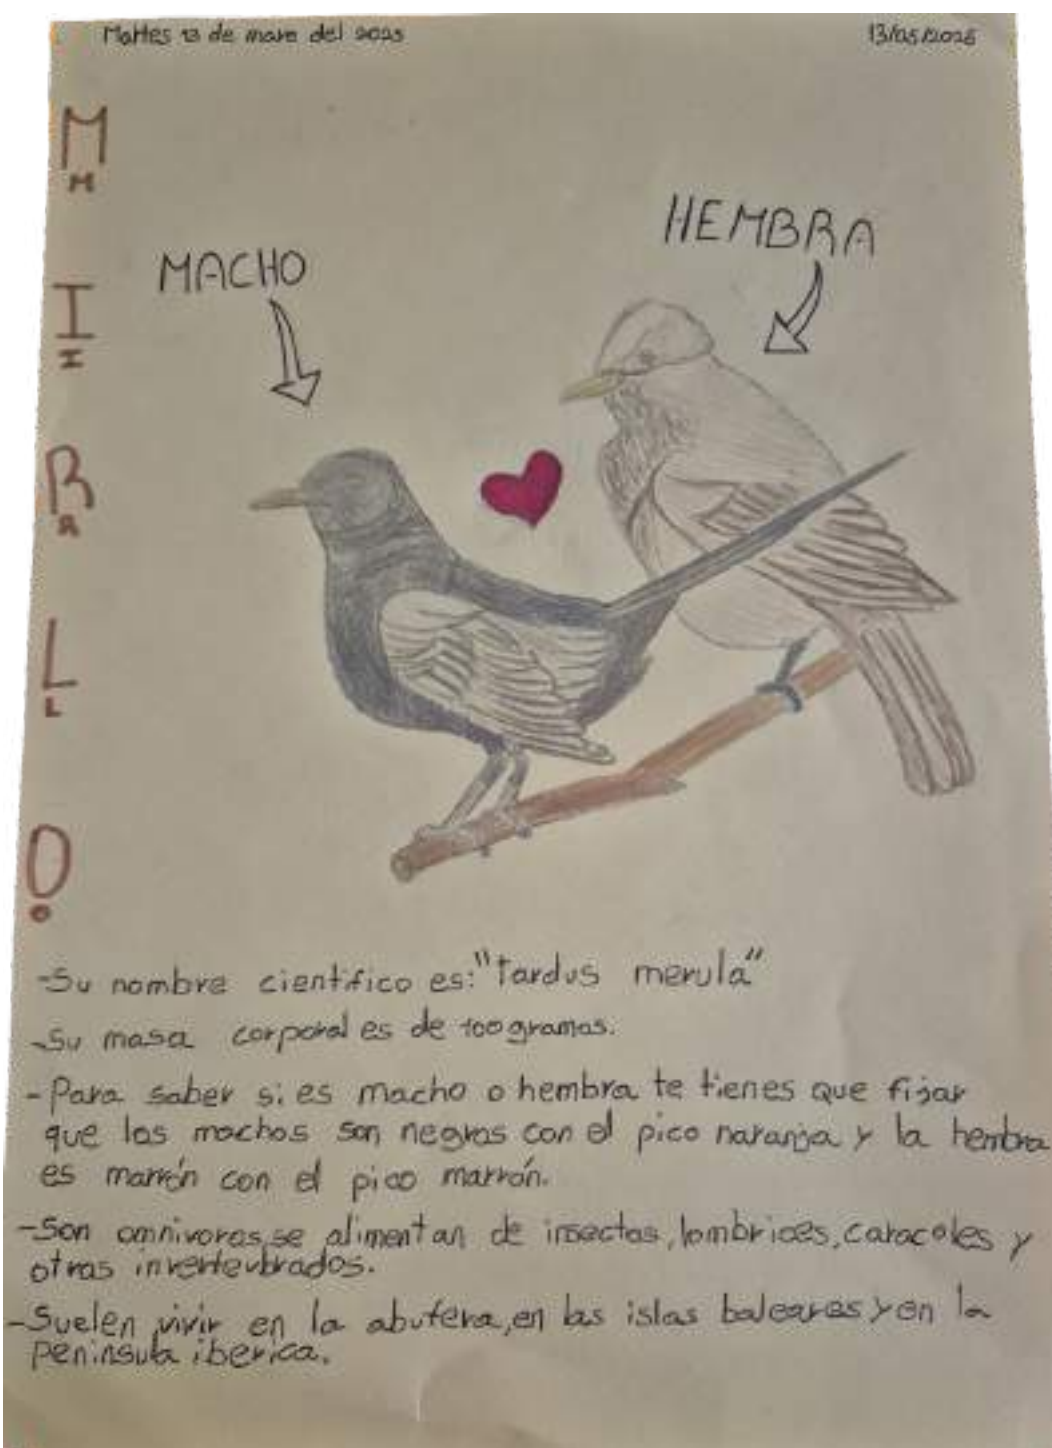 Martes 13 de maye del 2025
13/05/2025
M
M
HEMBRA
MACHO
I
I
R
R
L
L
O
O
-Su nombre cientifico es: "Tardus merula"
-Su masa corporal es de 100 gramos.
-Para saber si es macho o hembra te tienes que fijar
que los machos son negros con el pico naranja y la hembra
es marrón con el pico marrón.
-Son omnivoros, se alimentan de insectos, lombrices, caracoles y
otros invertevbrados.
-Suelen vivir en la abufera, en las islas baleares y en la
peninsula iberica.